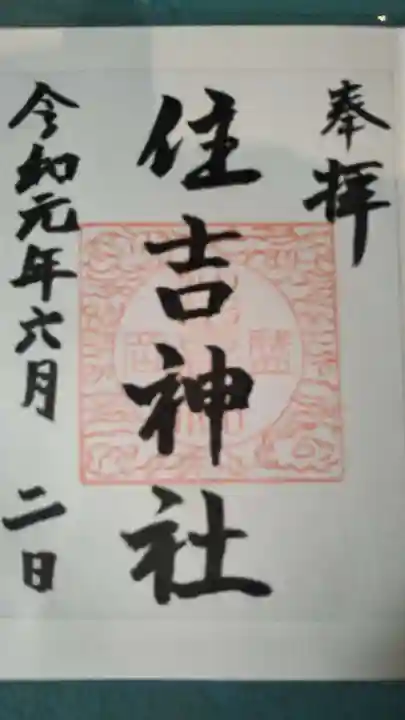 奉拝
住吉神社
令和元年六月二日